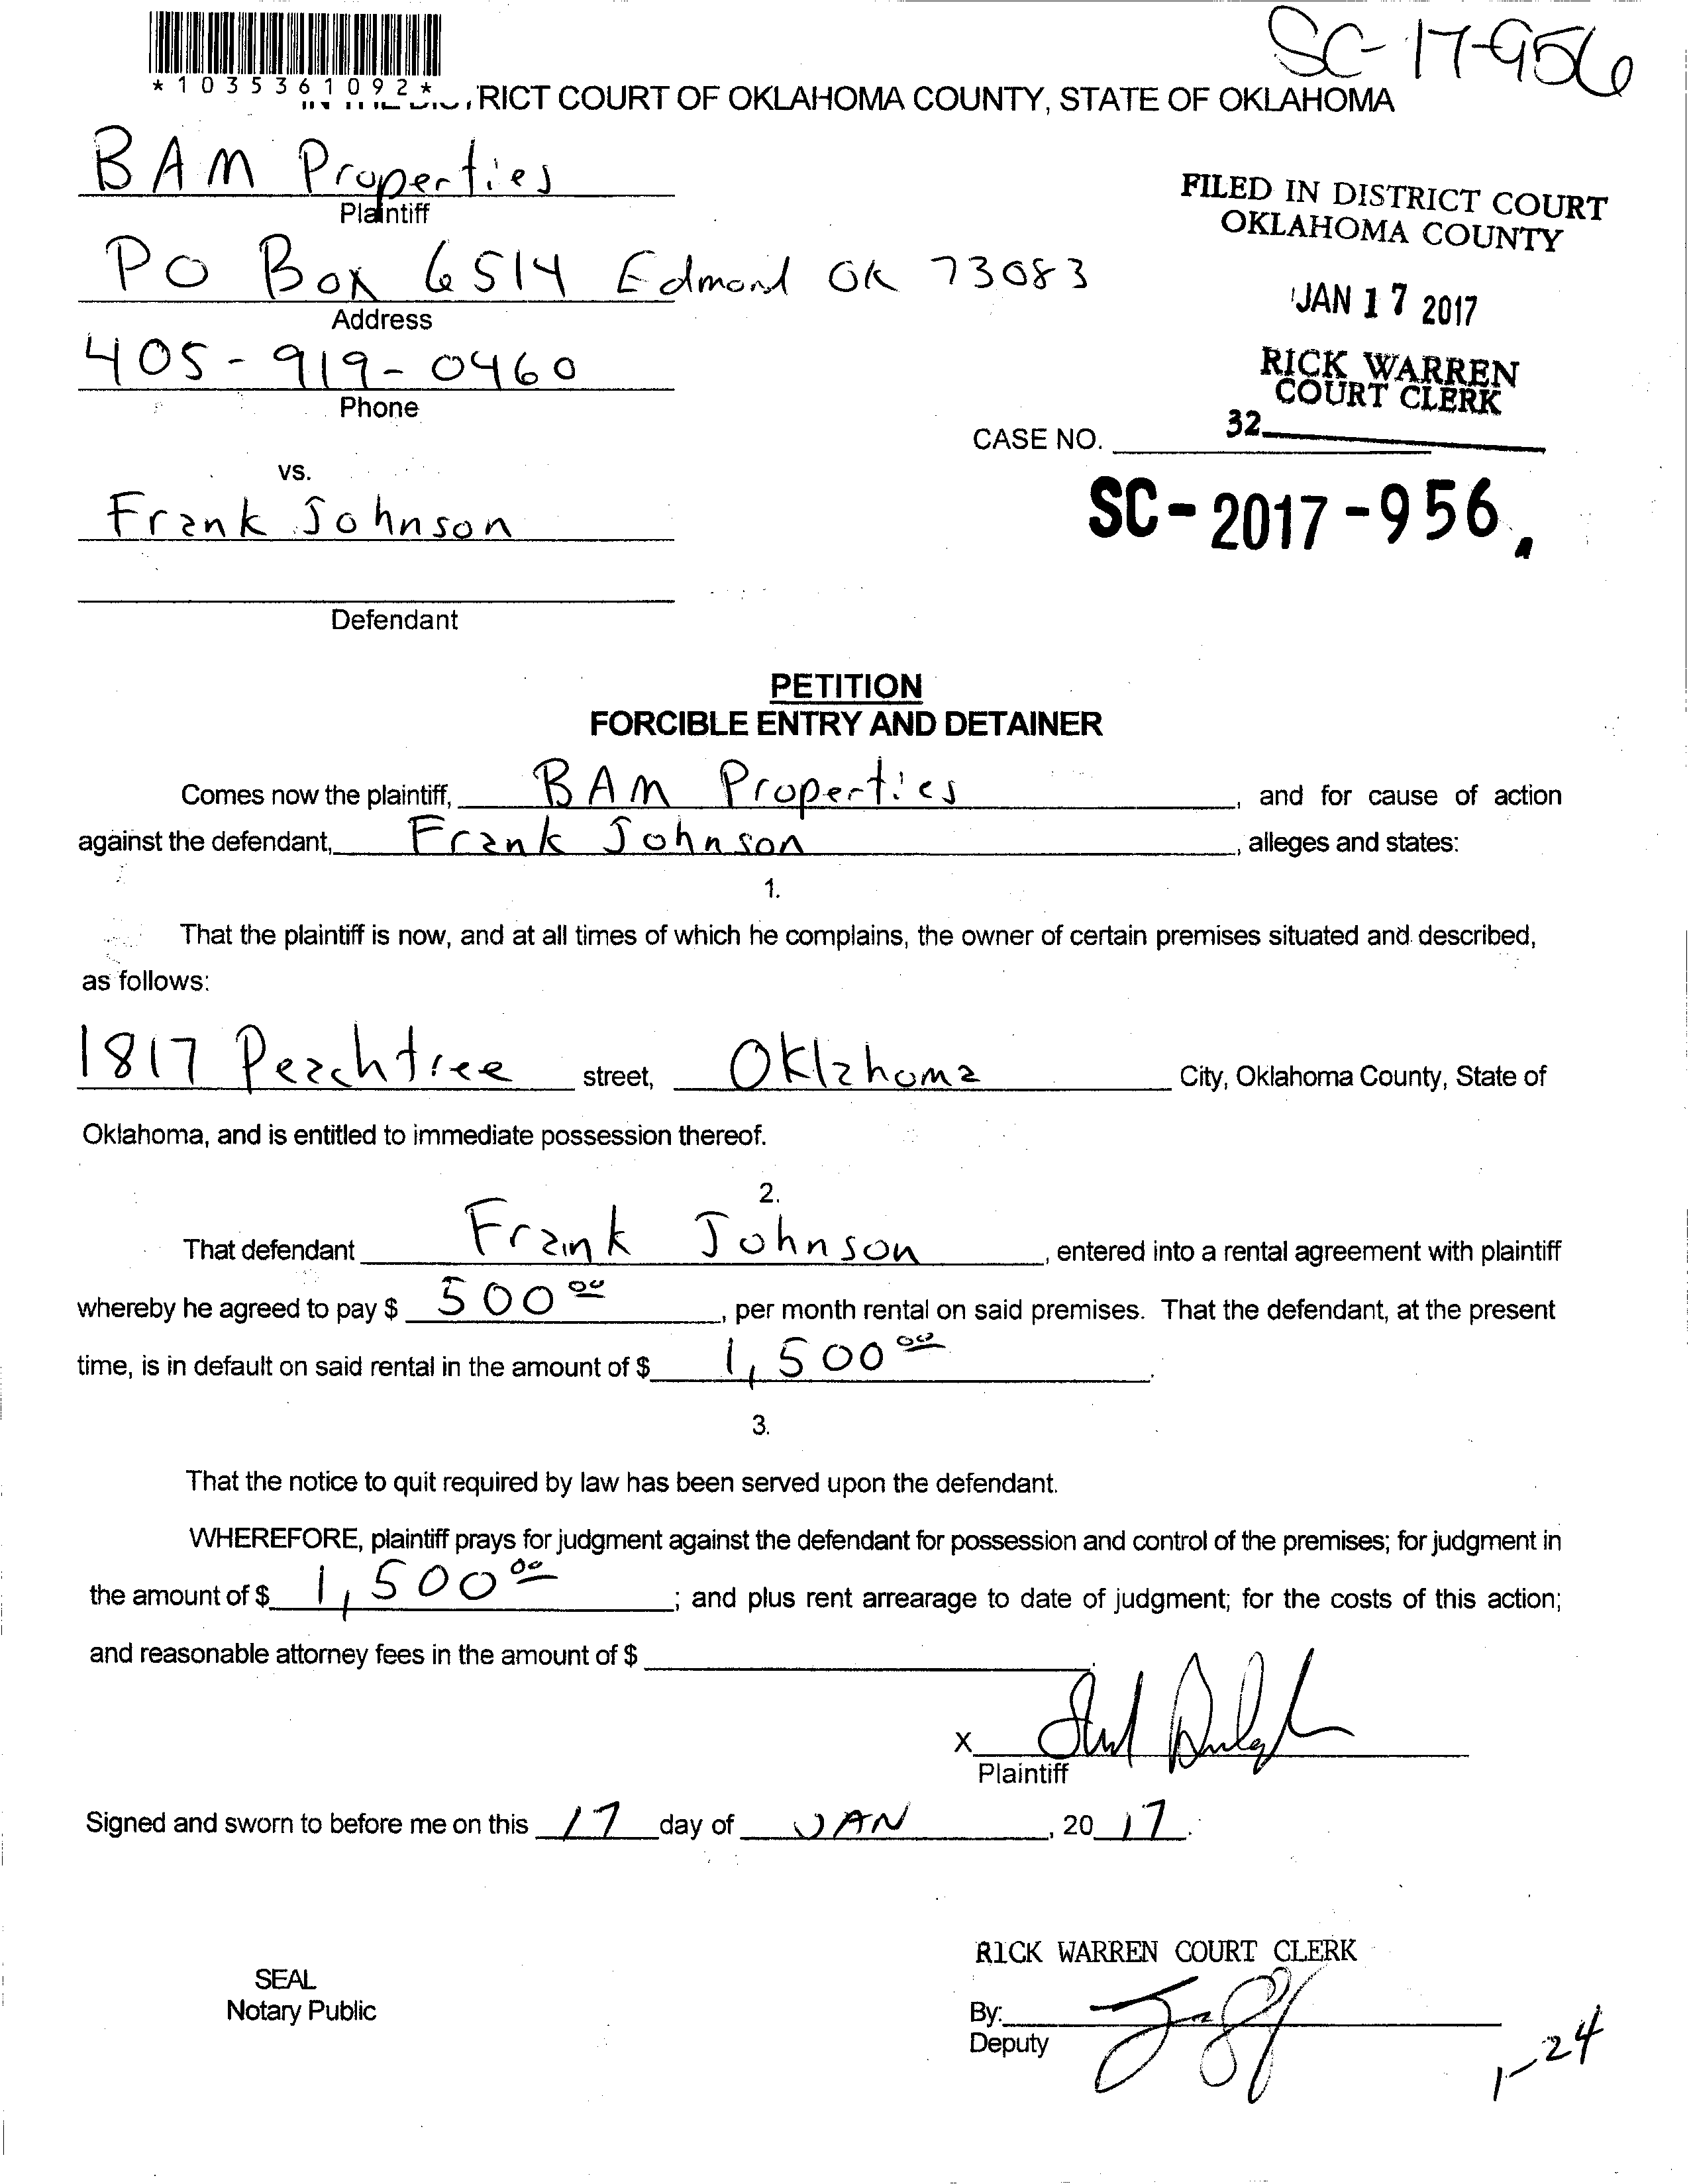 SC-17-956
*1035361092*
RICT COURT OF OKLAHOMA COUNTY, STATE OF OKLAHOMA
BAM Properties
Plaintiff
FILED IN DISTRICT COURT
OKLAHOMA COUNTY
PO Box 6514 Edmond OK 73083
Address
JAN 17 2017
405-919-0460
Phone
RICK WARREN
COURT CLERK
32
CASE NO.
vs.
Frank Johnson
SC-2017-956
Defendant
PETITION
FORCIBLE ENTRY AND DETAINER
Comes now the plaintiff, BAM Properties, and for cause of action
against the defendant, Frank Johnson, alleges and states:
1.
That the plaintiff is now, and at all times of which he complains, the owner of certain premises situated and described,
as follows:
1817 Peachtree street, Oklahoma City, Oklahoma County, State of
Oklahoma, and is entitled to immediate possession thereof.
2.
That defendant Frank Johnson, entered into a rental agreement with plaintiff
whereby he agreed to pay $ 500 00, per month rental on said premises. That the defendant, at the present
time, is in default on said rental in the amount of $ 1,500 00.
3.
That the notice to quit required by law has been served upon the defendant.
WHEREFORE, plaintiff prays for judgment against the defendant for possession and control of the premises; for judgment in
the amount of $ 1,500 00; and plus rent arrearage to date of judgment; for the costs of this action;
and reasonable attorney fees in the amount of $
X
Plaintiff
Signed and sworn to before me on this 17 day of JAN, 20 17.
RICK WARREN COURT CLERK
SEAL
Notary Public
By:
Deputy
1-24